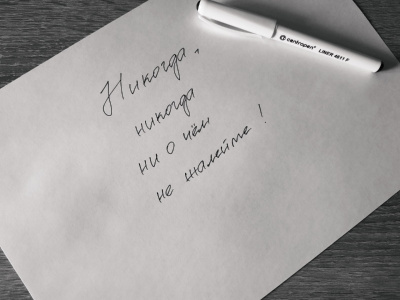 centropen LINER 4611 F
Никогда,
никогда
ни о чём
не жалейте!